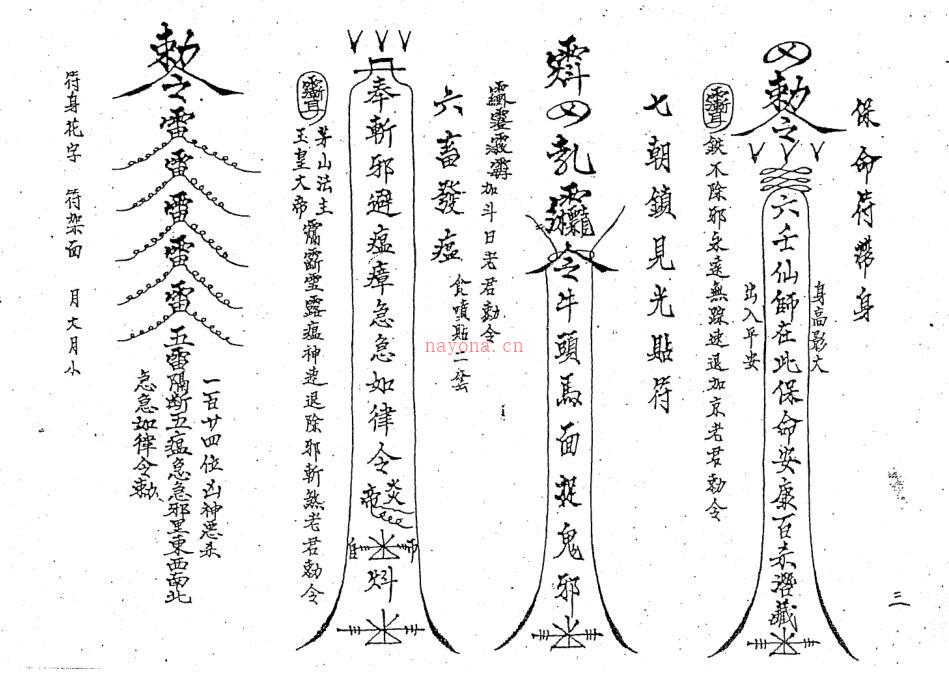 保命符帶身
勅令
六壬仙師在此保命安康百煞潛藏
身高影大
出入平安
鉄不除邪永遠無踪速退加京老君勅令
七朝鎖見光貼符
令牛頭馬面捉鬼邪
加斗日老君勅令
六畜發瘟
食噴貼二套
奉斬邪避瘟瘴急急如律令
茅山法主
玉皇大帝
瘟神速退除邪斬煞老君勅令
勅令雷雷雷雷雷五雷隔断五瘟急急邪里東西南北
一百廿四位凶神惡杀
急急如律令勅
符身花字 符架面 月大月小
三
nayona.cn